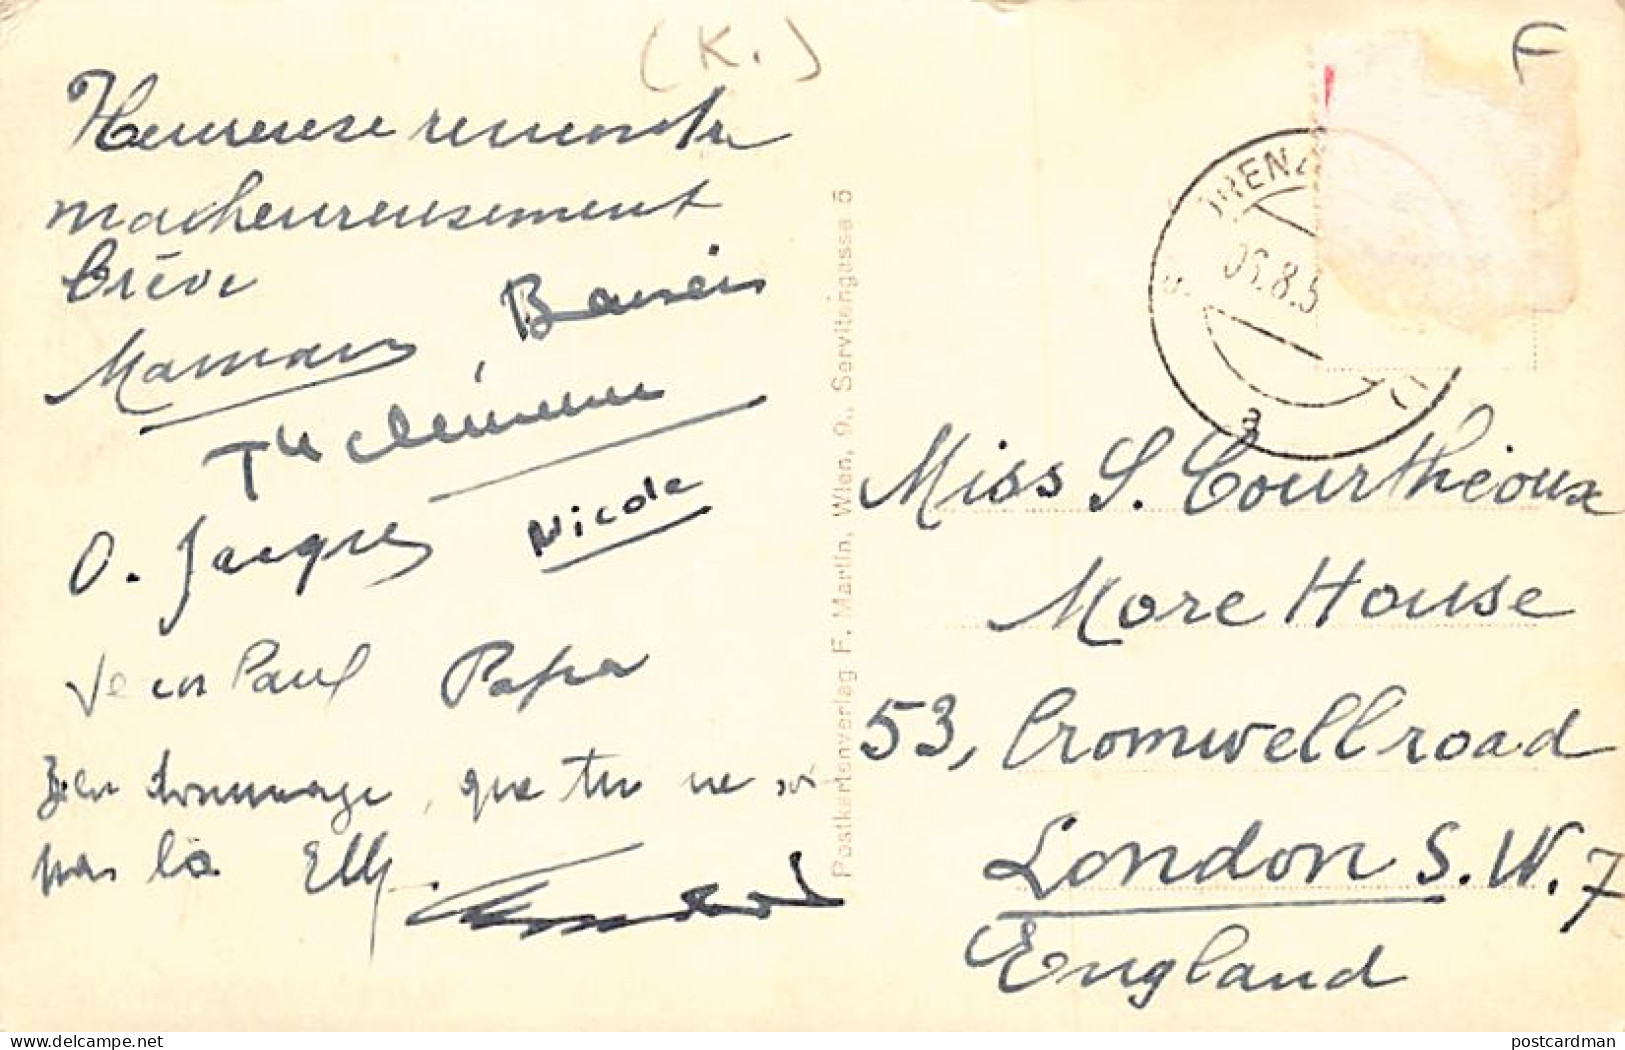 (K.)
F
Heureuse rencontre
malheureusement
brève
Maman, Baisers
Th Clémence
O. Jacques Nicole
Jean Paul Papa
Bien dommage, que tu ne sois
pas là Elly.
06.8.5
a
Postkartenverlag F. Martin, Wien, 9., Servitengasse 5
Miss S. Courthéoux
More House
53, Cromwell road
London S.W.7
England
delcampe.net
postcardman